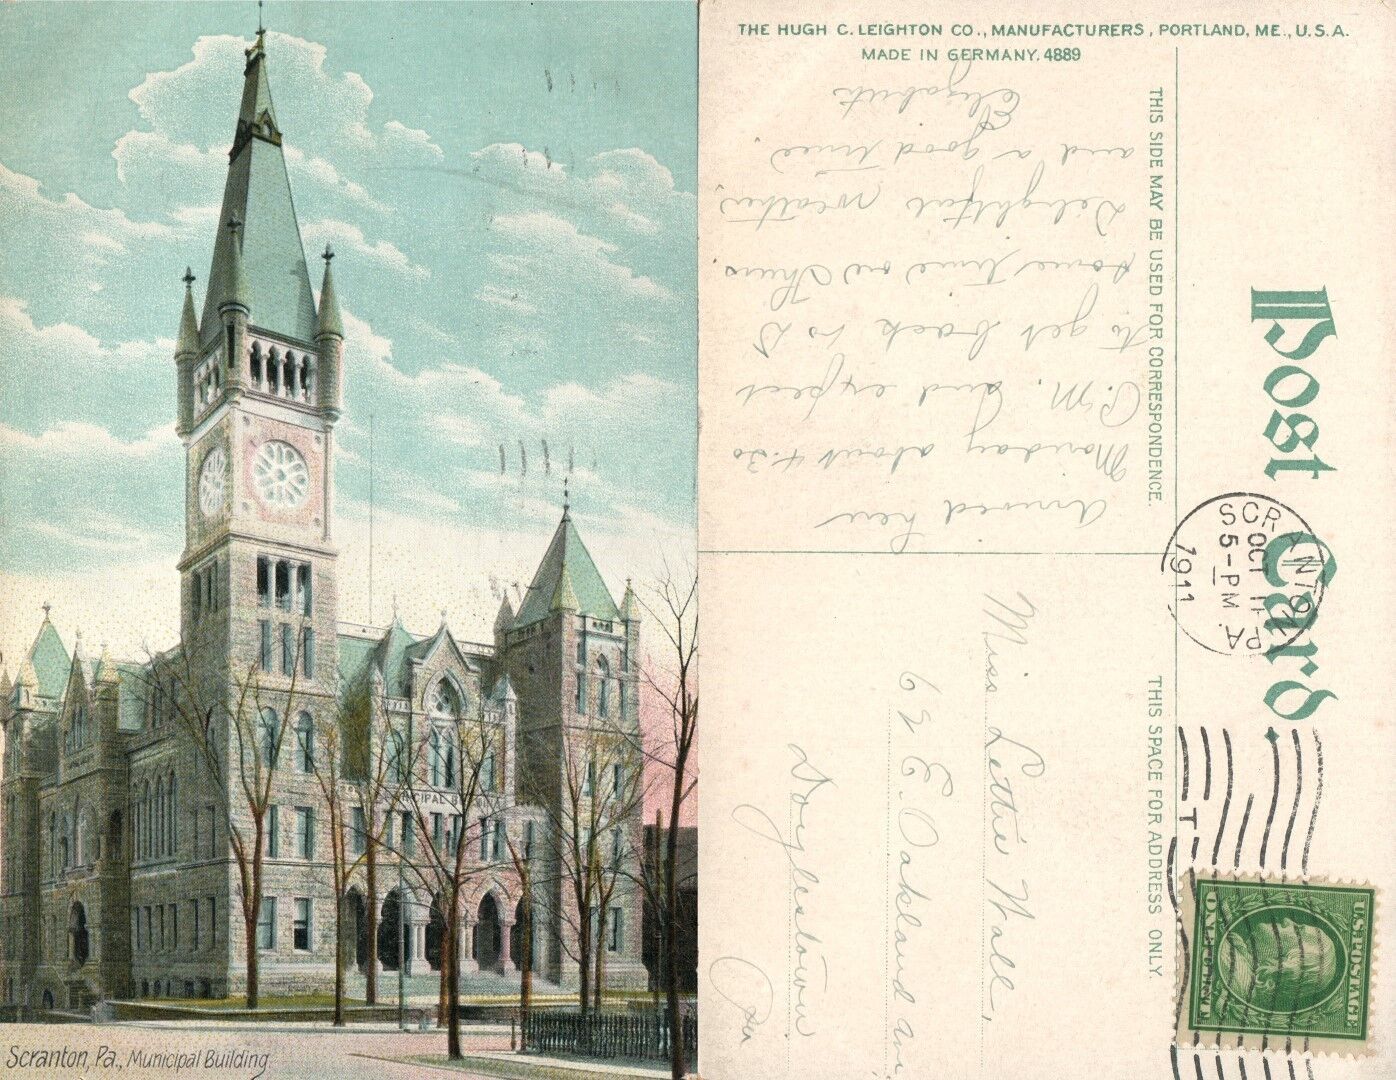 Scranton, Pa., Municipal Building.
MUNICIPAL
THE HUGH C. LEIGHTON CO., MANUFACTURERS, PORTLAND, ME., U.S.A.
MADE IN GERMANY. 4889
Post Card.
THIS SIDE MAY BE USED FOR CORRESPONDENCE.
THIS SPACE FOR ADDRESS ONLY.
Arrived here
Monday about 4.30
P.M. and expect
to get back to D
some time on Thurs
Delightful weather
and a good time.
Elizabeth
Miss Lettie Wall,
E. Oakland ave
Doylestown
Pa
SCRANTON, PA.
OCT 11
5-PM
1911
U.S. POSTAGE
ONE CENT